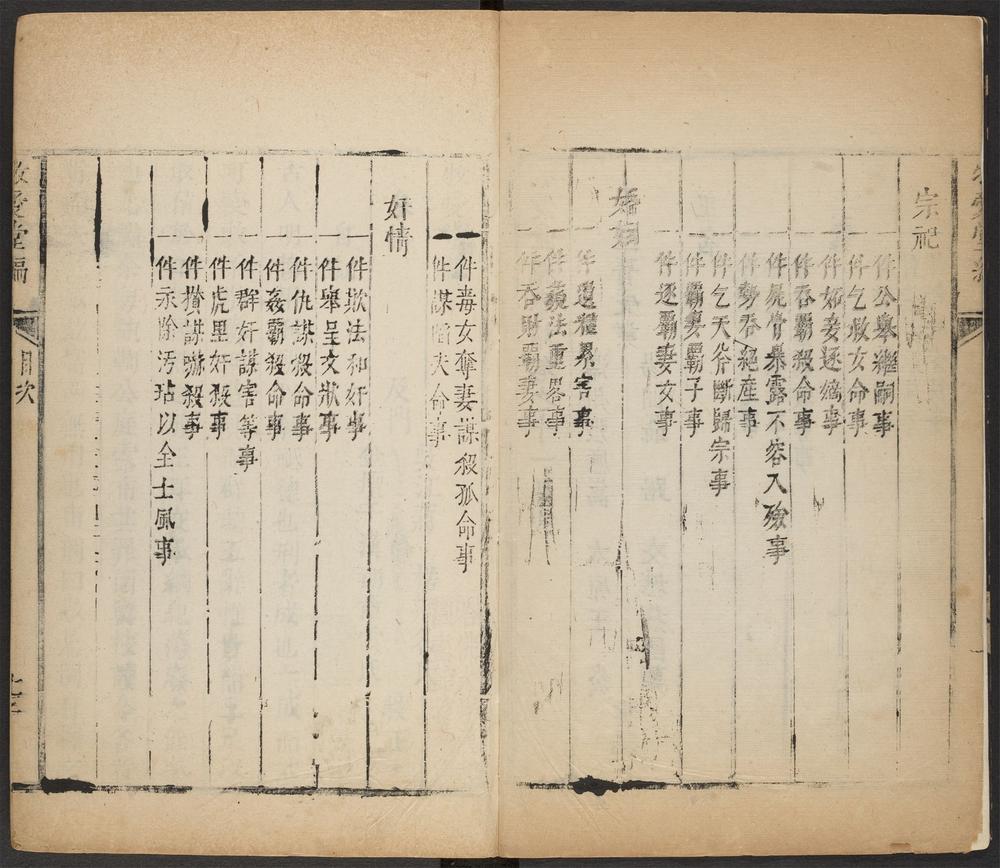 宗祀
一件公舉繼嗣事
一件乞救女命事
一件妬妾逐嫡事
一件吞霸殺命事
一件屍骨暴露不容入殮事
一件勢吞絕産事
一件乞天斧斷歸宗事
一件霸妻霸子事
一件逐霸妻女事
婚姻
一件事
一件法重畧事
一件吞財霸妻事
一件毒女奪妻謀殺孤命事
一件謀陷夫命事
奸情
一件欺法和奸事
一件舉呈交狀事
一件仇謀殺命事
一件姦霸殺命事
一件群奸謀害等事
一件虎里奸殺事
一件攢謀嚇殺事
一件永除汚玷以全士風事
敬愛堂編
目次